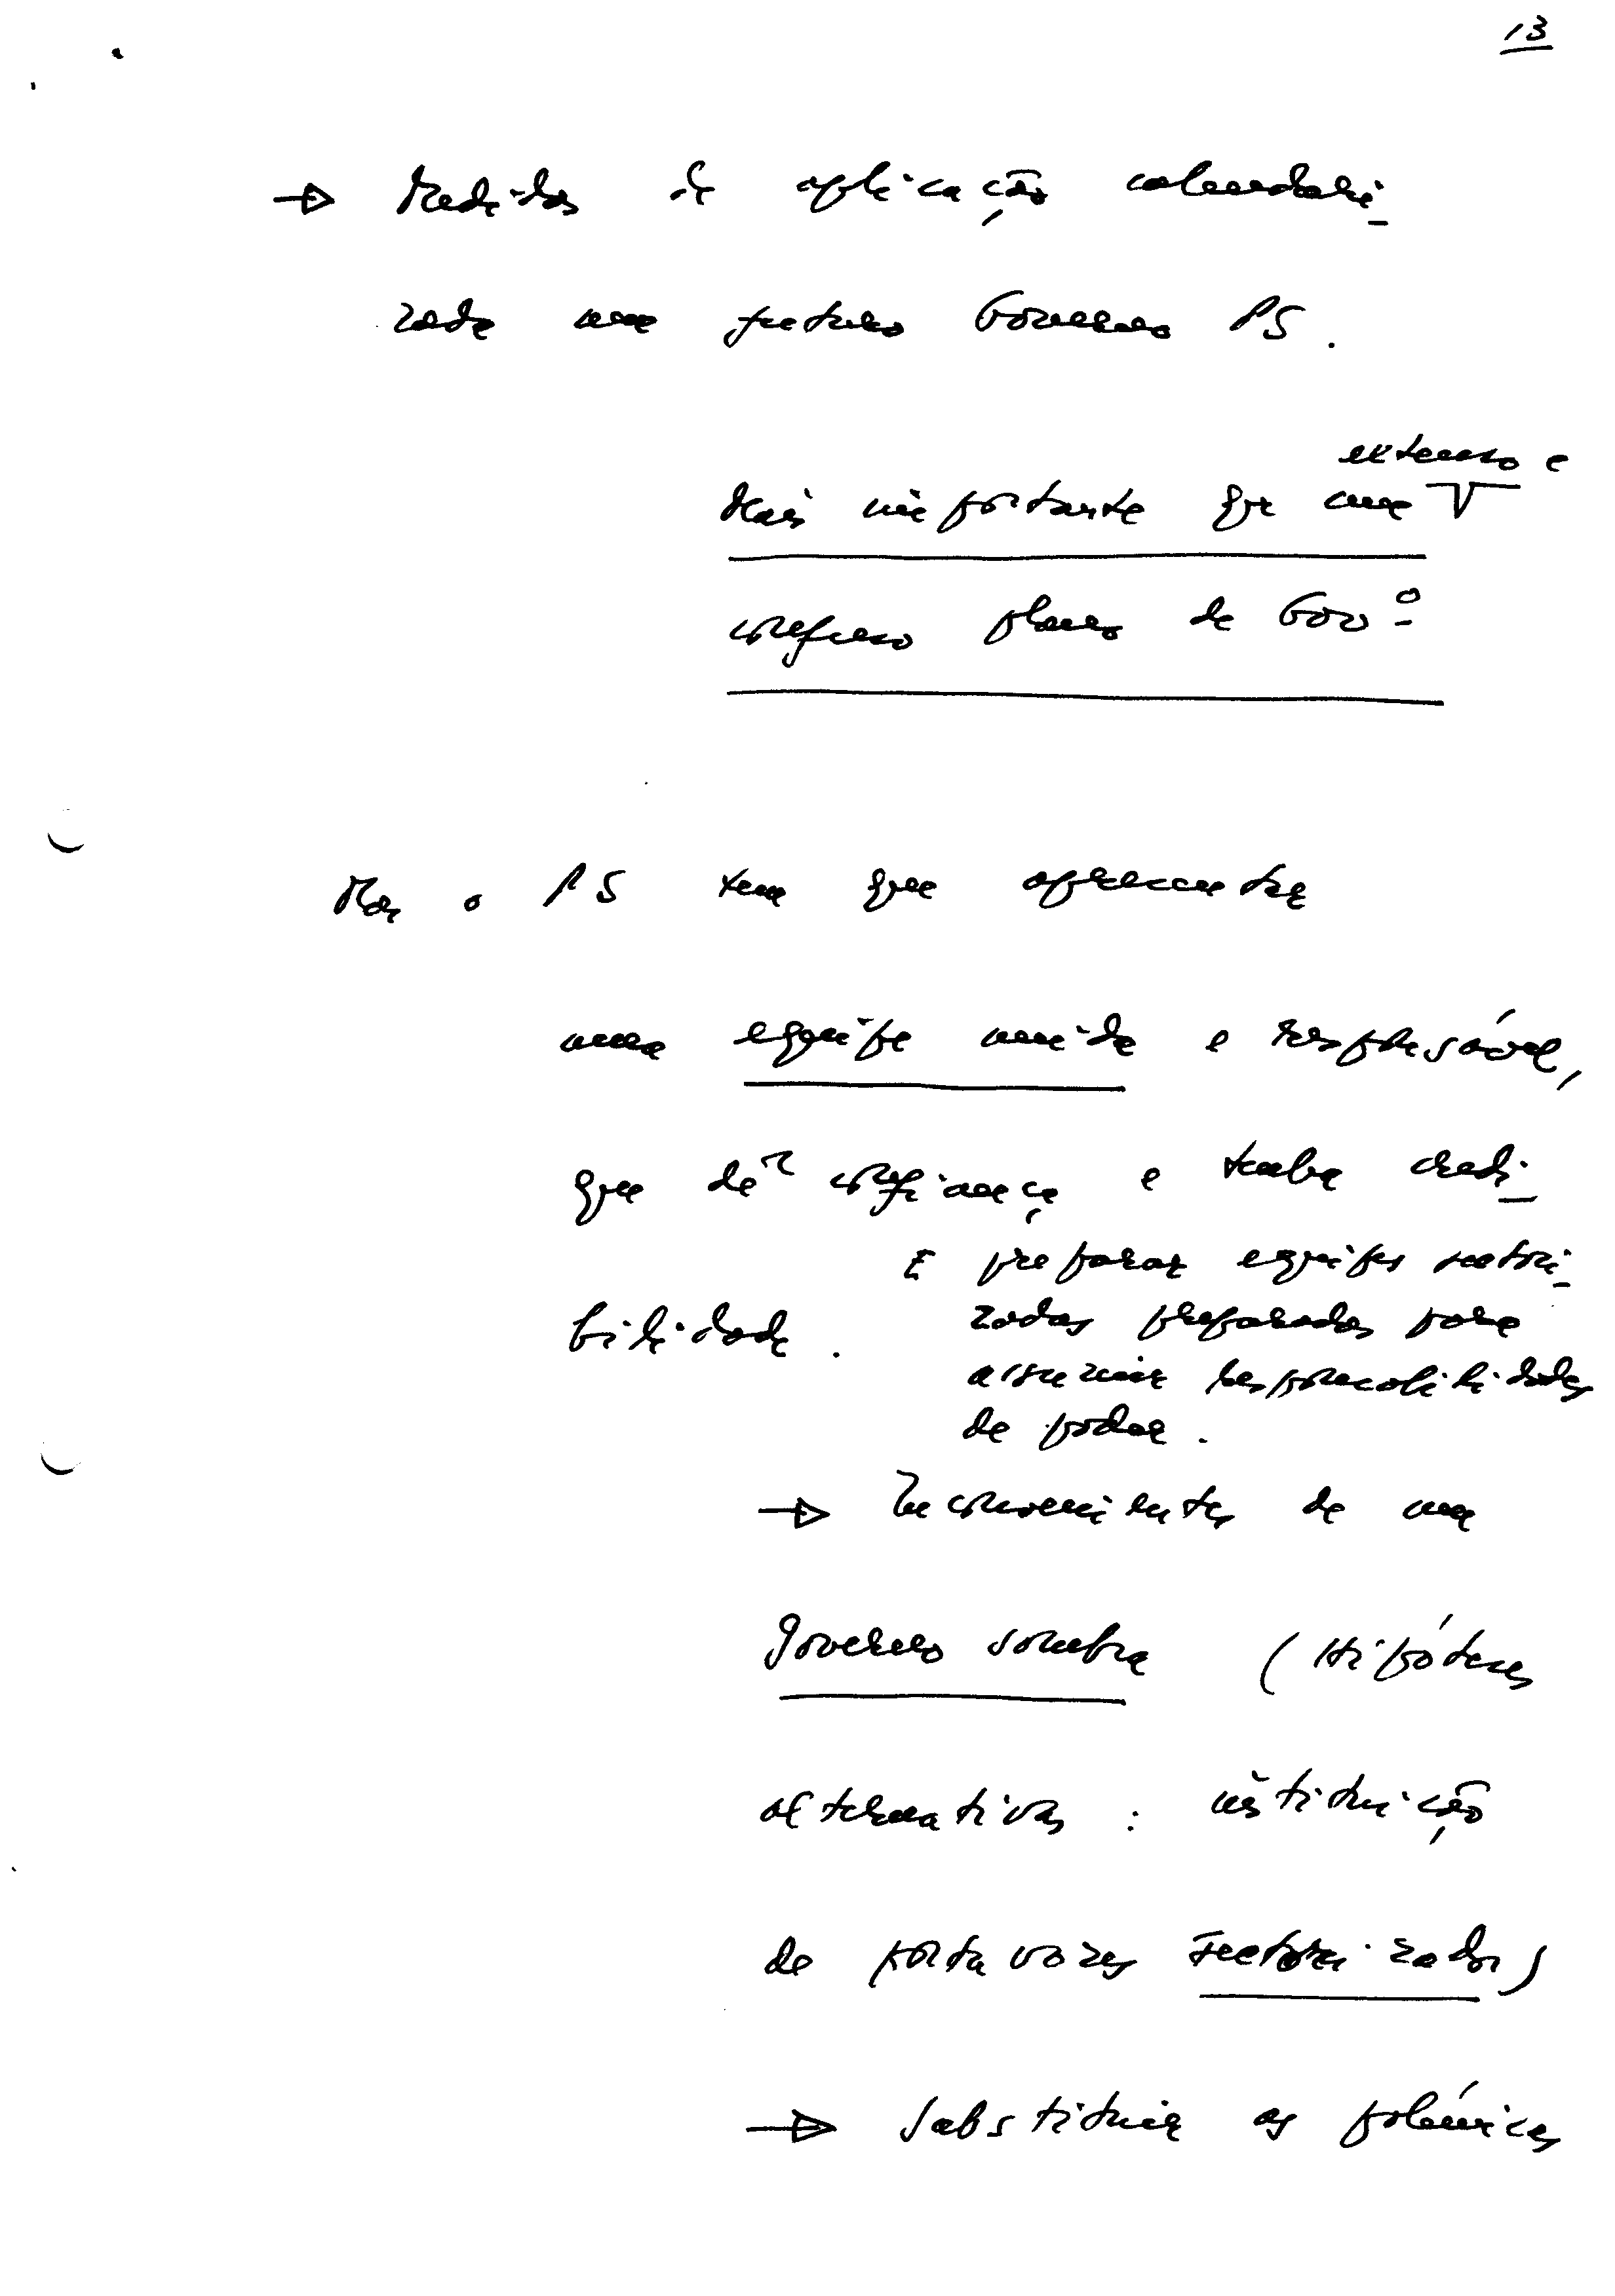 13
→ Medidas de aplicação calendari-
zada num futuro Governo PS.
extenso e
Mais importante que um
confuso plano de Govº
Mas o PS tem que apresentar
uma equipe unida e responsável,
que dê confiança e tenha credi-
E preparar equipes sectori-
bilidade.
zadas preparadas para
assumir responsabilidades
de poder.
→ Inconvenientes de um
governo sombra (Hipóteses
alternativas: instituição
de porta vozes sectorizados)
→ Substituir as polémicas